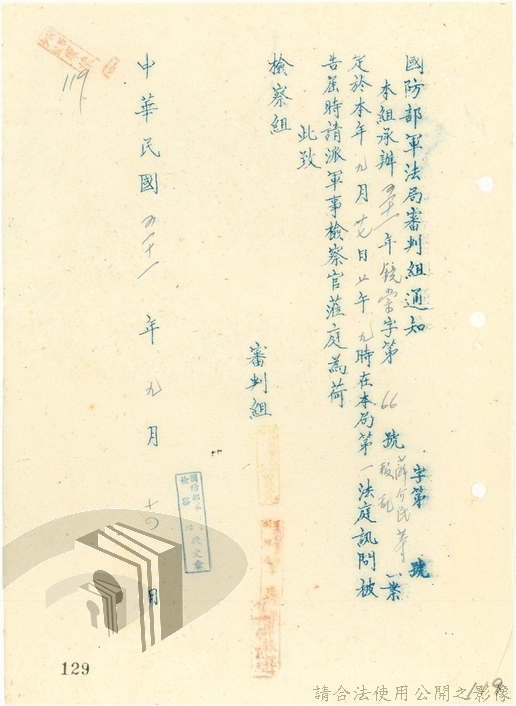 國防部軍法局審判組通知
字第 號
本組承辦五十一年鏡常字第66號薛介民等叛亂一案
定於本年九月廿七日上午九時在本局第一法庭訊問被
告屆時請派軍事檢察官蒞庭為荷
此致
檢察組
審判組
中華民國五十一年九月 日
收文章
119
129
119
請合法使用公開之影像